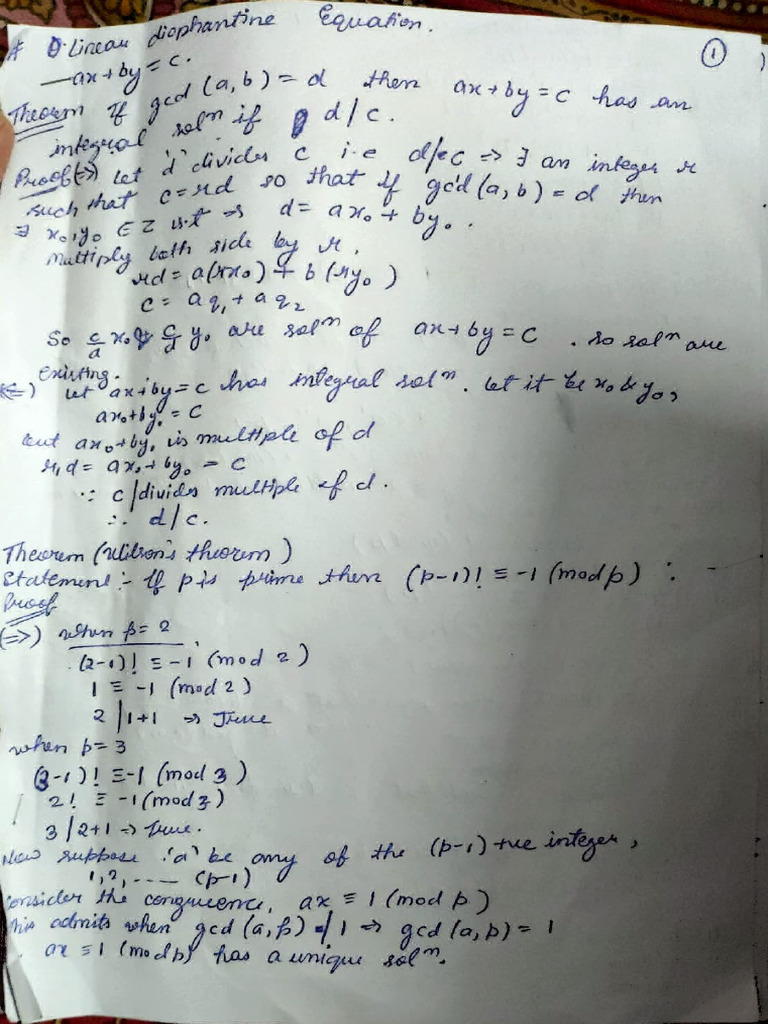 # Linear diophantine Equation. ①
— ax + by = c.
Theorem If gcd (a, b) = d then ax + by = c has an
integral solⁿ if d / c.
Proof (⇒) Let 'd' divides c i.e d/c ⇒ ∃ an integer r
such that c = rd so that if gcd (a, b) = d then
∃ x₀, y₀ ∈ Z s.t ⇒ d = ax₀ + by₀.
Multiply both side by r.
rd = a(rx₀) + b (ry₀)
c = aq₁ + aq₂
So c/d x₀ & c/d y₀ are solⁿ of ax + by = c . so solⁿ are
existing.
(⇐) Let ax + by = c has integral solⁿ. Let it be x₀ & y₀,
ax₀ + by₀ = c
but ax₀ + by₀ is multiple of d
r₁d = ax₀ + by₀ = c
∵ c / divides multiple of d.
∴ d / c.
Theorem (Wilson's theorem)
Statement :- If p is prime then (p-1)! ≡ -1 (mod p) :
Proof
(⇒) when p = 2
(2-1)! ≡ -1 (mod 2)
1 ≡ -1 (mod 2)
2 | 1+1 ⇒ True
when p = 3
(3-1)! ≡ -1 (mod 3)
2! ≡ -1 (mod 3)
3 / 2+1 ⇒ True.
Now suppose 'a' be any of the (p-1) +ve integer,
1, 2, .... (p-1)
consider the congruence, ax ≡ 1 (mod p)
This admits when gcd (a, p) / 1 ⇒ gcd (a, p) = 1
ax ≡ 1 (mod p) has a unique solⁿ.